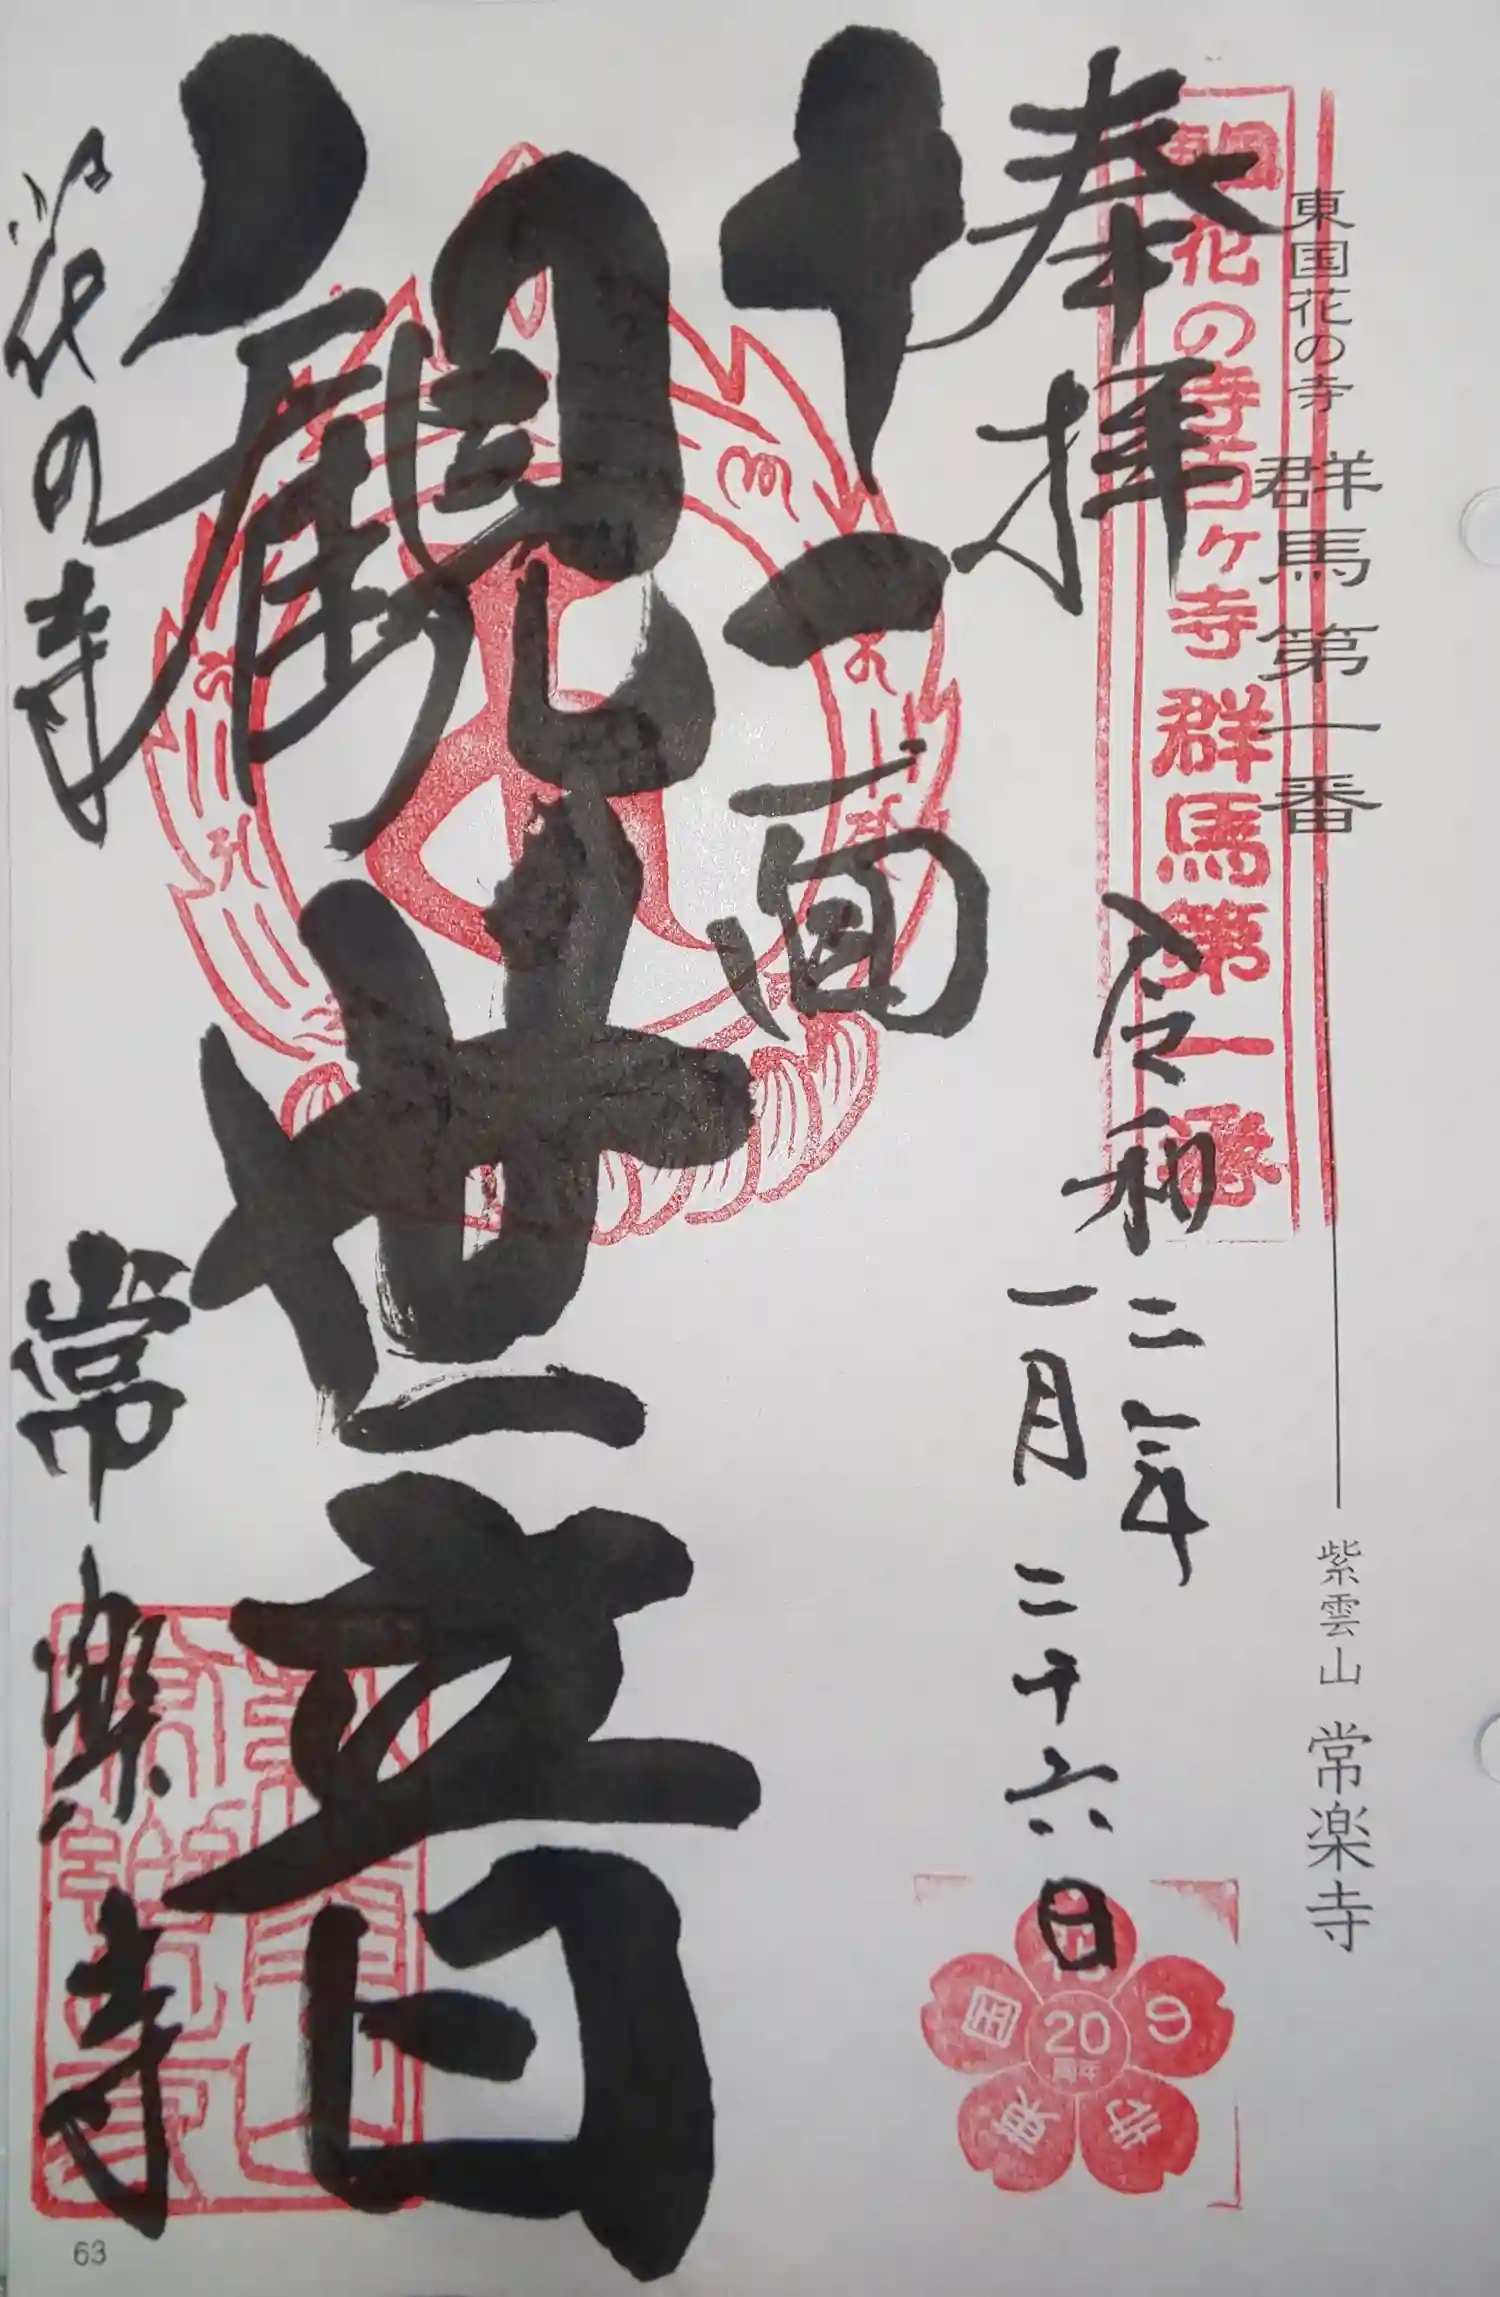 東国花の寺 群馬第一番 紫雲山 常楽寺
花の寺百ヶ寺 群馬第一番
奉拝 令和二年
一月二十六日
十一面
観世音
花の寺 常楽寺
東国花の寺
20
周年
63